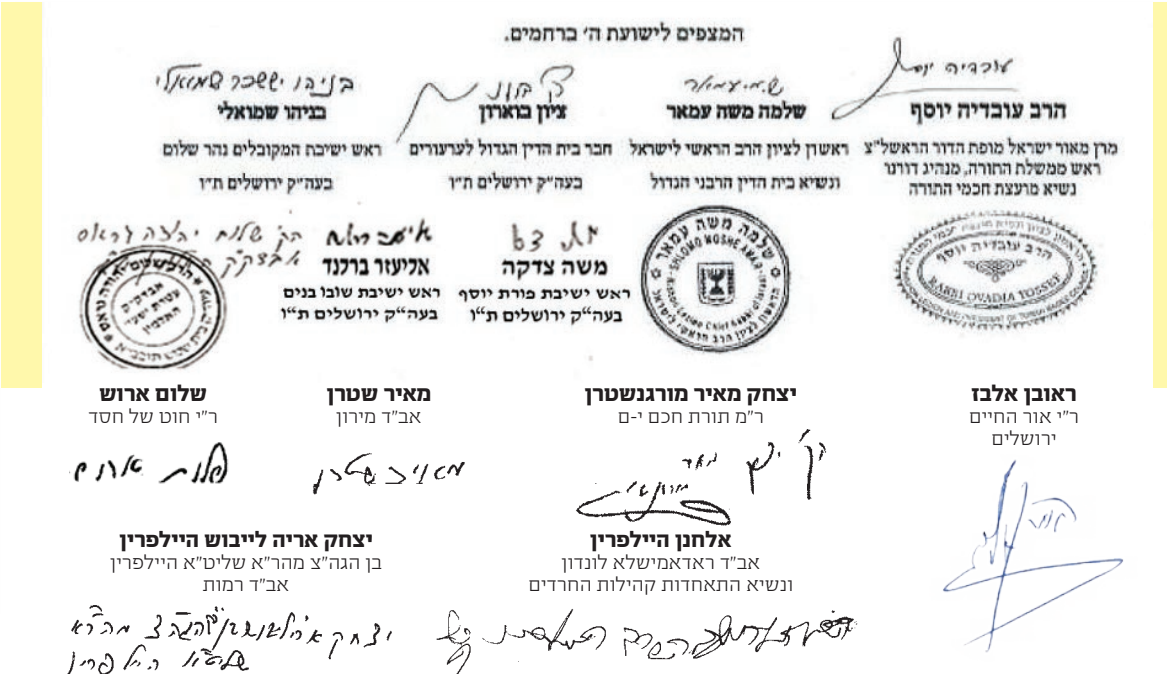 המצפים לישועת ה׳ ברחמים.
עובדיה יוסף
הרב עובדיה יוסף
מרן מאור ישראל מופת הדור הראשל״צ
ראש ממשלת התורה, מנהיג דורנו
נשיא מועצת חכמי התורה
הרב עובדיה יוסף
RABBI OVADIA YOSSEF
שלמה משה עמאר
ראשון לציון הרב הראשי לישראל
ונשיא בית הדין הרבני הגדול
שלמה משה עמאר
SHLOMO MOSHE AMAR
הראשון לציון הרב הראשי לישראל
ציון בוארון
חבר בית הדין הגדול לערעורים
בעה״ק ירושלים ת״ו
בניהו יששכר שמואלי
בניהו שמואלי
ראש ישיבת המקובלים נהר שלום
בעה״ק ירושלים ת״ו
משה צדקה
ראש ישיבת פורת יוסף
בעה״ק ירושלים ת״ו
אליעזר ברלנד
ראש ישיבת שובו בנים
בעה״ק ירושלים ת״ו
ראובן אלבז
ר״י אור החיים
ירושלים
יצחק מאיר מורגנשטרן
ר״מ תורת חכם י-ם
מאיר שטרן
אב״ד מירון
מאיר שטרן
שלום ארוש
ר״י חוט של חסד
שלום ארוש
אלחנן היילפרין
אב״ד ראדאמישלא לונדון
ונשיא התאחדות קהילות החרדים
יצחק אריה לייבוש היילפרין
בן הגה״צ מהר״א שליט״א היילפרין
אב״ד רמות